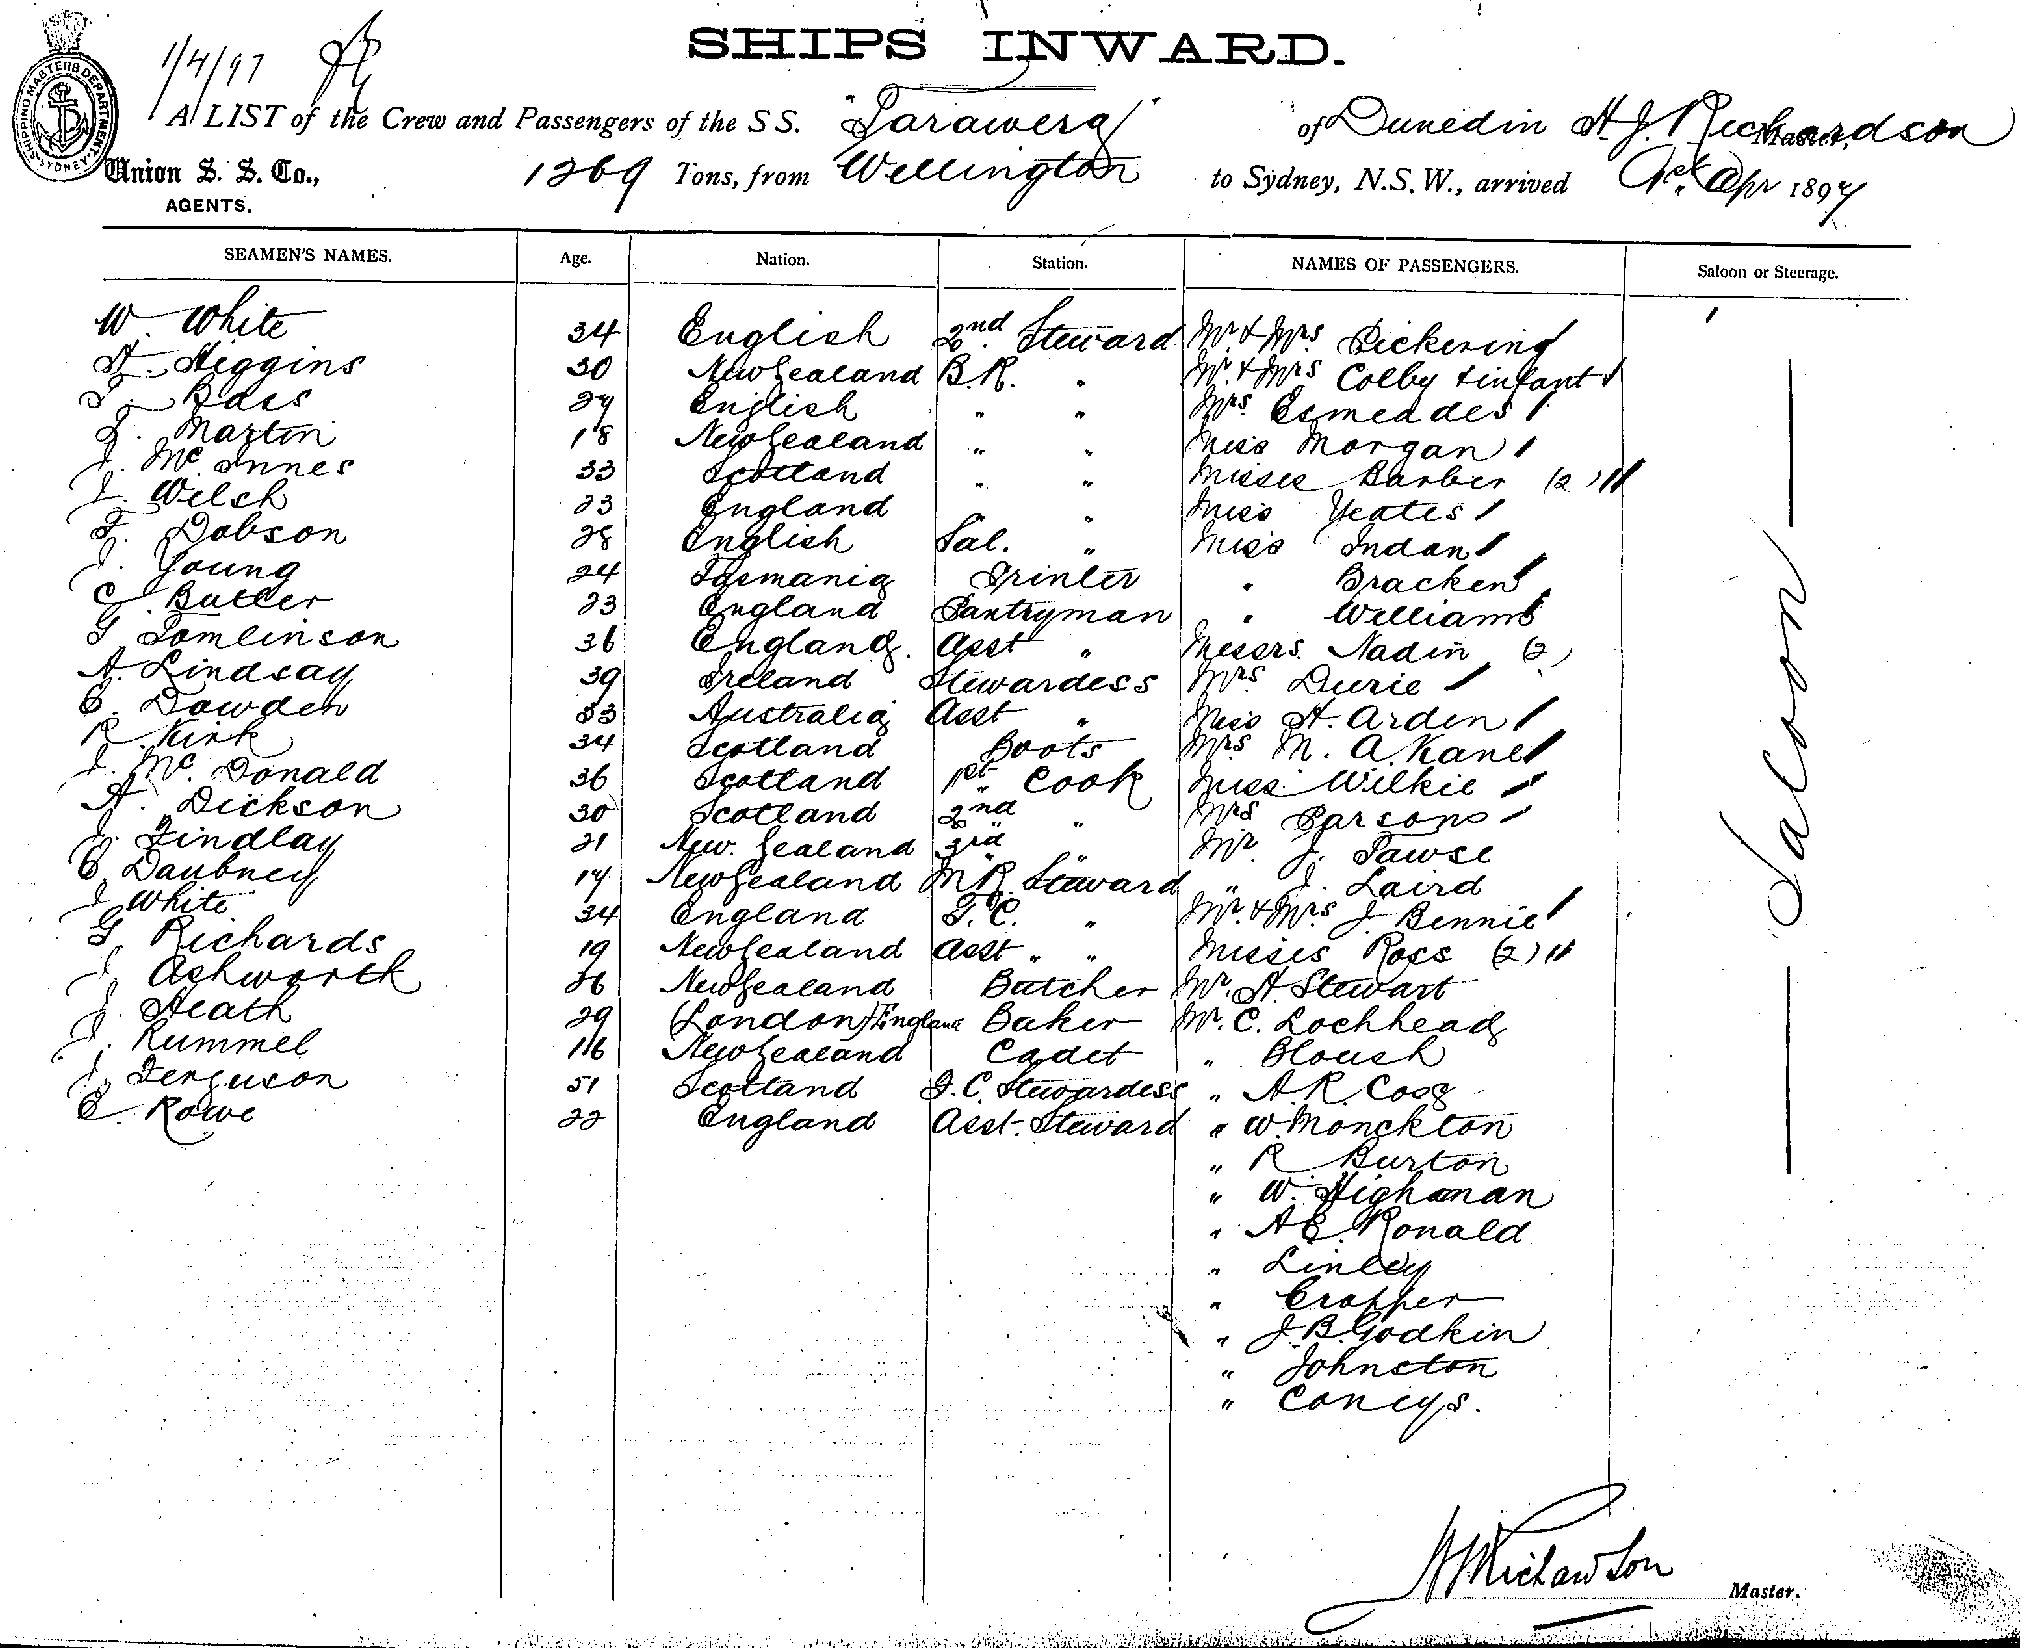 SHIPS INWARD.
1/4/97
SHIPPING MASTERS DEPARTMENT SYDNEY
A LIST of the Crew and Passengers of the SS. "Tarawera" of Dunedin H. J. Richardson Master,
Union S. S. Co., AGENTS. 1269 Tons, from Wellington to Sydney, N.S.W., arrived 1st Apr 1897
SEAMEN'S NAMES. Age. Nation. Station. NAMES OF PASSENGERS. Saloon or Steerage.
W. White 34 English 2nd Steward Mr & Mrs Pickering
H. Higgins 30 New Zealand B.R. " Mr. & Mrs Colby & infant
Bass 27 English " " Mrs Esmeades
Martin 18 New Zealand " " Miss Morgan
J. McInnes 33 Scotland " " Misses Barber (2)
Welsh 23 England " " Miss Yeates
F. Dobson 28 English Sal. " Miss Indan
J. Young 24 Tasmania Printer " Bracken
C. Butler 23 England Pantryman " Williams
G Tomlinson 36 England. Asst " Messrs. Nadin (2)
A. Lindsay 39 Ireland Stewardess Mrs Durie
E. Dowden 33 Australia Asst " Miss H. Arden
R. Kirk 34 Scotland Boots Mrs M. A. Kane
J. Mc. Donald 36 Scotland 1st Cook Miss Wilkie
A. Dickson 30 Scotland 2nd " Mrs Parsons
J. Findlay 21 New. Zealand 3rd " Mr. J. Tawse
E. Daubney 17 New Zealand M.R. Steward " J. Laird
J. White 34 England F.C. " Mr. & Mrs J. Bennie
G. Richards 19 New Zealand Asst " " Misses Ross (2)
J. Ashworth 26 New Zealand Butcher Mr. A. Stewart
J. Heath 29 (London) England Baker Mr. C. Lochhead
J. Rummel 16 New Zealand Cadet " Bloush
J. Ferguson 51 Scotland F.C. Stewardess " A. R. Coog
E. Rowe 22 England Asst. Steward " W. Monckton
" R Burton
" W. Highaman
" A E. Ronald
" Linley
" Cropper
" J. B. Godkin
" Johnston
" Coneys.
Saloon
H J Richardson Master.